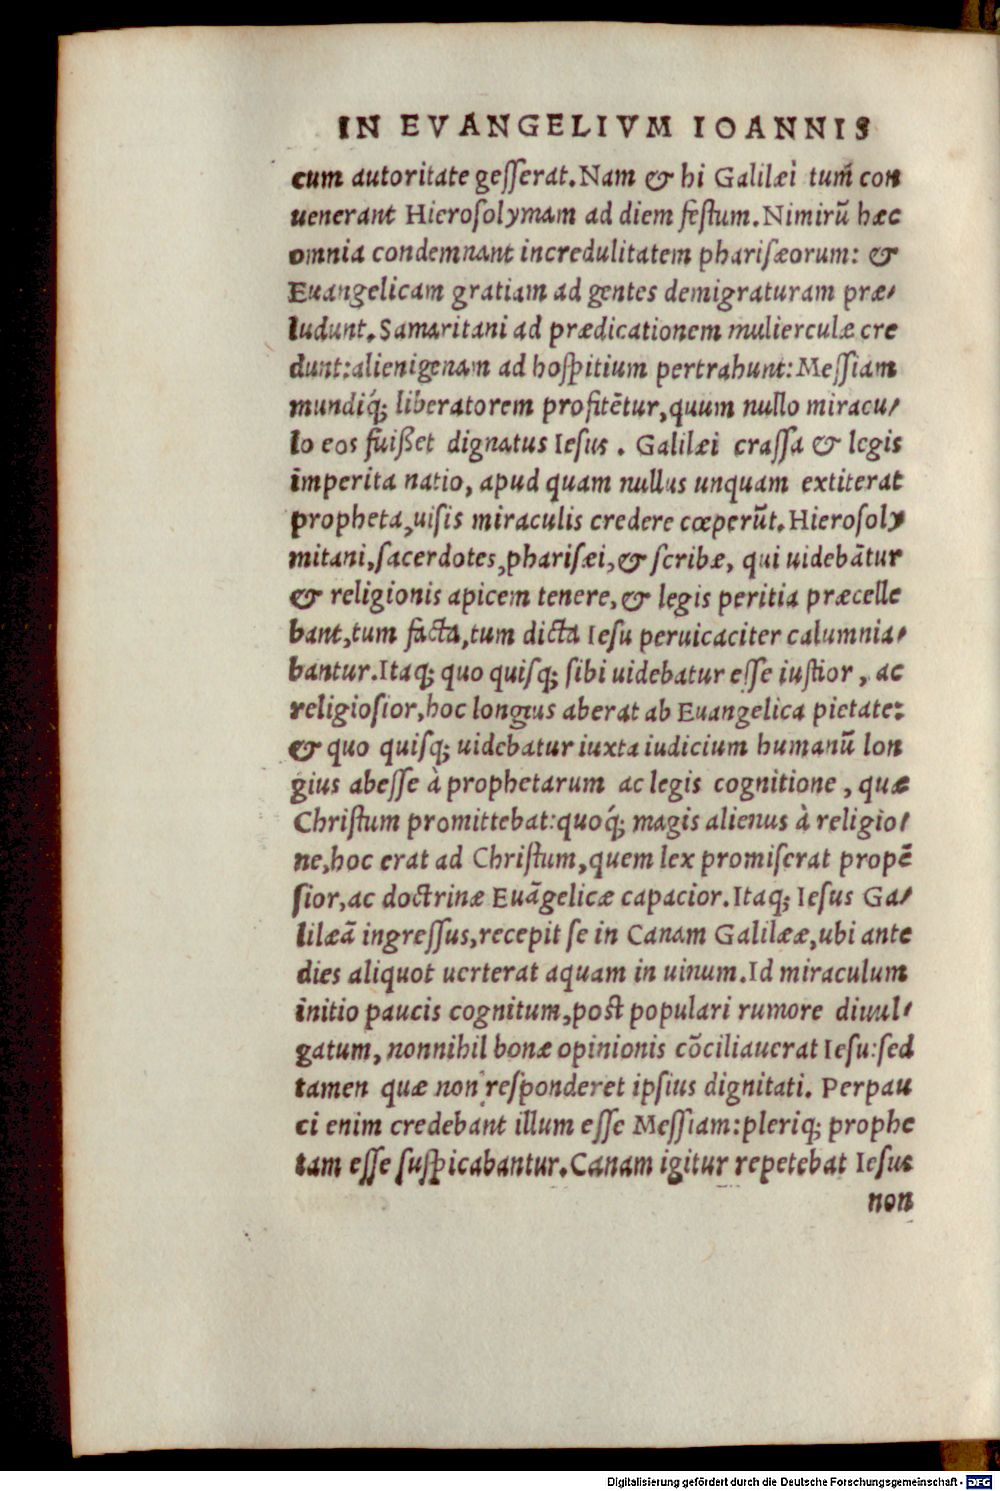 IN EVANGELIVM IOANNIS
cum autoritate geſſerat. Nam & hi Galilæi tum̃ con
uenerant Hieroſolymam ad diem feſtum. Nimirũ hæc
omnia condemnant incredulitatem phariſæorum: &
Euangelicam gratiam ad gentes demigraturam præ/
ludunt. Samaritani ad prædicationem mulierculæ cre
dunt: alienigenam ad hoſpitium pertrahunt: Meſſiam
mundiq́; liberatorem profitẽtur, quum nullo miracu/
lo eos fuißet dignatus Ieſus. Galilæi craſſa & legis
imperita natio, apud quam nullus unquam extiterat
propheta, uiſis miraculis credere cœperũt. Hieroſoly
mitani, ſacerdotes, phariſæi, & ſcribæ, qui uidebãtur
& religionis apicem tenere, & legis peritia præcelle
bant, tum facta, tum dicta Ieſu peruicaciter calumnia/
bantur. Itaq; quo quiſq; ſibi uidebatur eſſe iuſtior, ac
religioſior, hoc longius aberat ab Euangelica pietate:
& quo quiſq; uidebatur iuxta iudicium humanũ lon
gius abeſſe à prophetarum ac legis cognitione, quæ
Chriſtum promittebat: quoq́; magis alienus à religio/
ne, hoc erat ad Chriſtum, quem lex promiſerat propẽ
ſior, ac doctrinæ Euãgelicæ capacior. Itaq; Ieſus Ga/
lilæã ingreſſus, recepit ſe in Canam Galilææ, ubi ante
dies aliquot uerterat aquam in uinum. Id miraculum
initio paucis cognitum, poſt populari rumore diuul/
gatum, nonnihil bonæ opinionis cõciliauerat Ieſu: ſed
tamen quæ non reſponderet ipſius dignitati. Perpau
ci enim credebant illum eſſe Meſſiam: pleriq; prophe
tam eſſe ſuſpicabantur. Canam igitur repetebat Ieſus
non
Digitalisierung gefördert durch die Deutsche Forschungsgemeinschaft - DFG